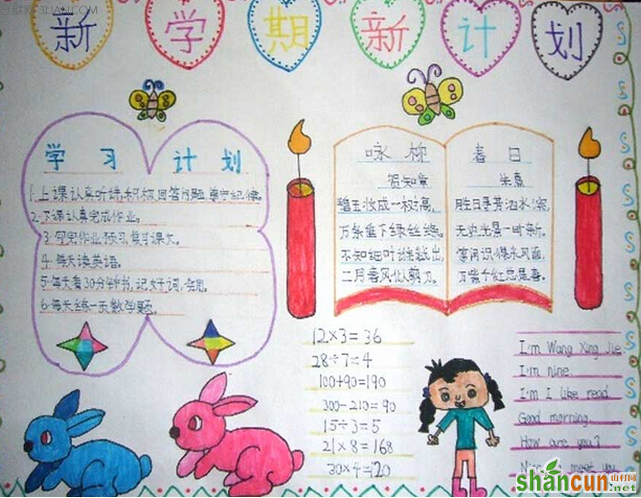 新学期新计划
学习计划
1.上课认真听讲,积极回答问题,遵守纪律。
2.下课认真完成作业。
3.写完作业预习、复习课文。
4.每天读英语。
5.每天看30分钟书,记好词、好句。
6.每天练一页数学题。
咏柳
贺知章
碧玉妆成一树高,
万条垂下绿丝绦。
不知细叶谁裁出,
二月春风似剪刀。
春日
朱熹
胜日寻芳泗水滨,
无边光景一时新。
等闲识得东风面,
万紫千红总是春。
12×3=36
28÷7=4
100+90=190
300-210=90
15÷3=5
21×8=168
30×4=120
I'm Wang Xing Jie
I'm nine.
I'm I like read
Good morning.
How are you?
meet you
shancun
.net